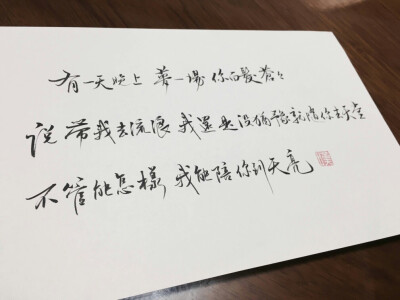 有一天晚上 夢一場 你白髮蒼々
说 帶我去流浪 我還是没猶豫就隨你去天堂
不管能怎樣 我能陪你到天亮